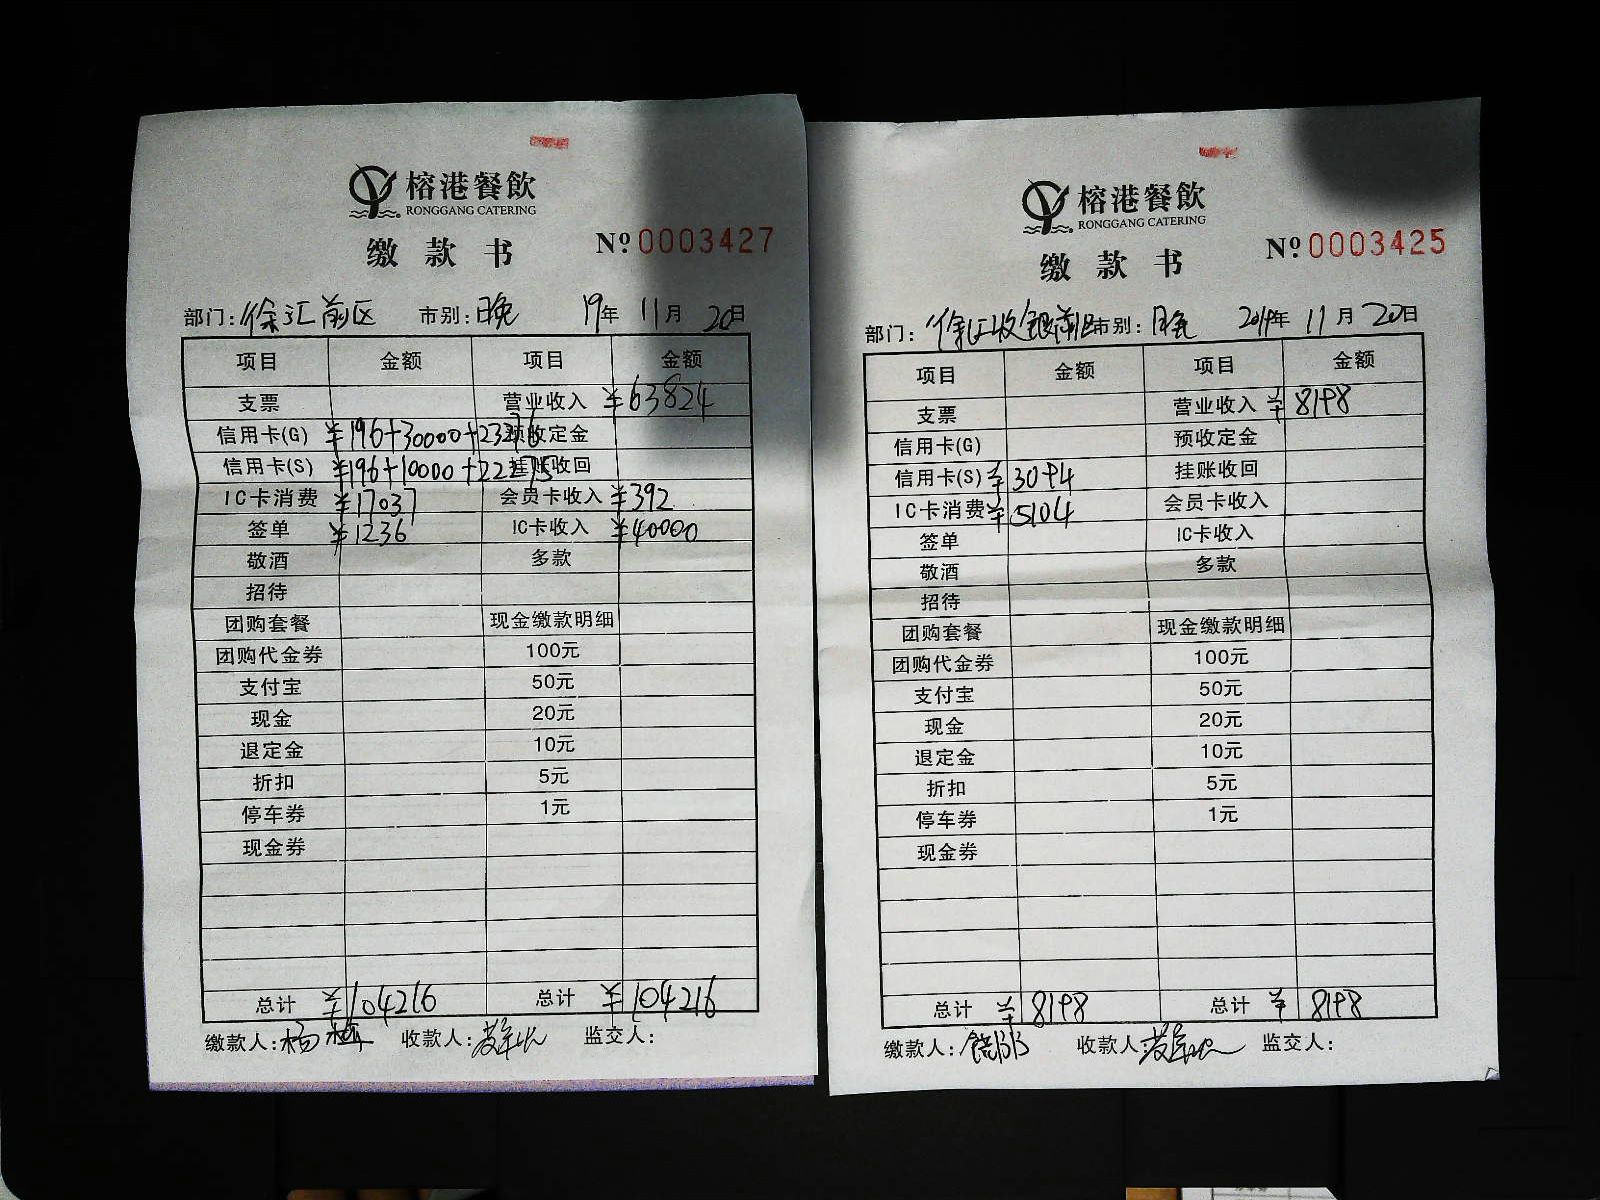 榕港餐飲
RONGGANG CATERING
缴款书 Nº 0003427
部门: 徐汇前区 市别: 晚 19年 11月 20日
项目 金额 项目 金额
支票 营业收入 ¥63824
信用卡(G) ¥196+30000+23276 预收定金
信用卡(S) ¥196+10000+22275 挂账收回
IC卡消费 ¥17037 会员卡收入 ¥392
签单 ¥1236 IC卡收入 ¥40000
敬酒 多款
招待
团购套餐 现金缴款明细
团购代金券 100元
支付宝 50元
现金 20元
退定金 10元
折扣 5元
停车券 1元
现金券
总计 ¥104216 总计 ¥104216
缴款人: 杨 收款人: 监交人:
榕港餐飲
RONGGANG CATERING
缴款书 Nº 0003425
部门: 徐汇收银前区 市别: 晚 2019年 11月 20日
项目 金额 项目 金额
支票 营业收入 ¥8198
信用卡(G) 预收定金
信用卡(S) ¥3094 挂账收回
IC卡消费 ¥5104 会员卡收入
签单 IC卡收入
敬酒 多款
招待
团购套餐 现金缴款明细
团购代金券 100元
支付宝 50元
现金 20元
退定金 10元
折扣 5元
停车券 1元
现金券
总计 ¥8198 总计 ¥8198
缴款人: 收款人: 监交人: